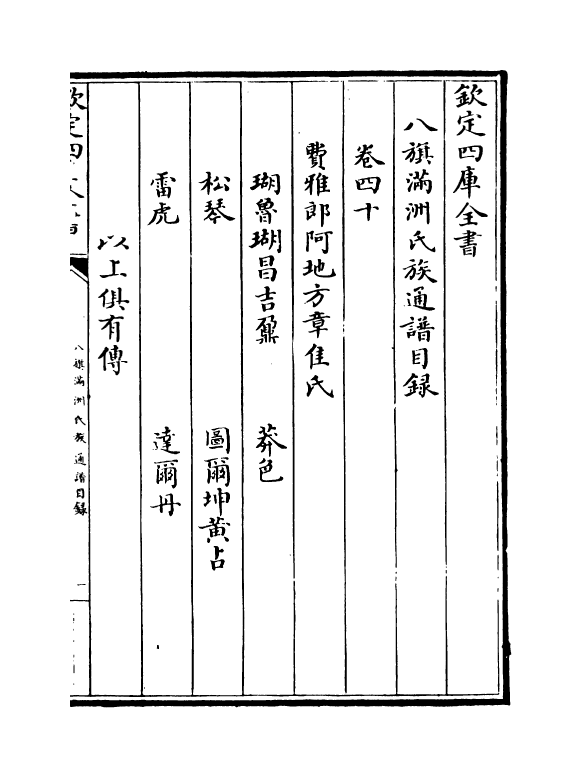 欽定四庫全書
八旗滿洲氏族通譜目録
卷四十
費雅郎阿地方章佳氏
瑚魯瑚昌吉鼐　莽色
松琴　圖爾坤黃占
雷虎　達爾丹
以上俱有傳
八旗滿洲氏族通譜目録
一